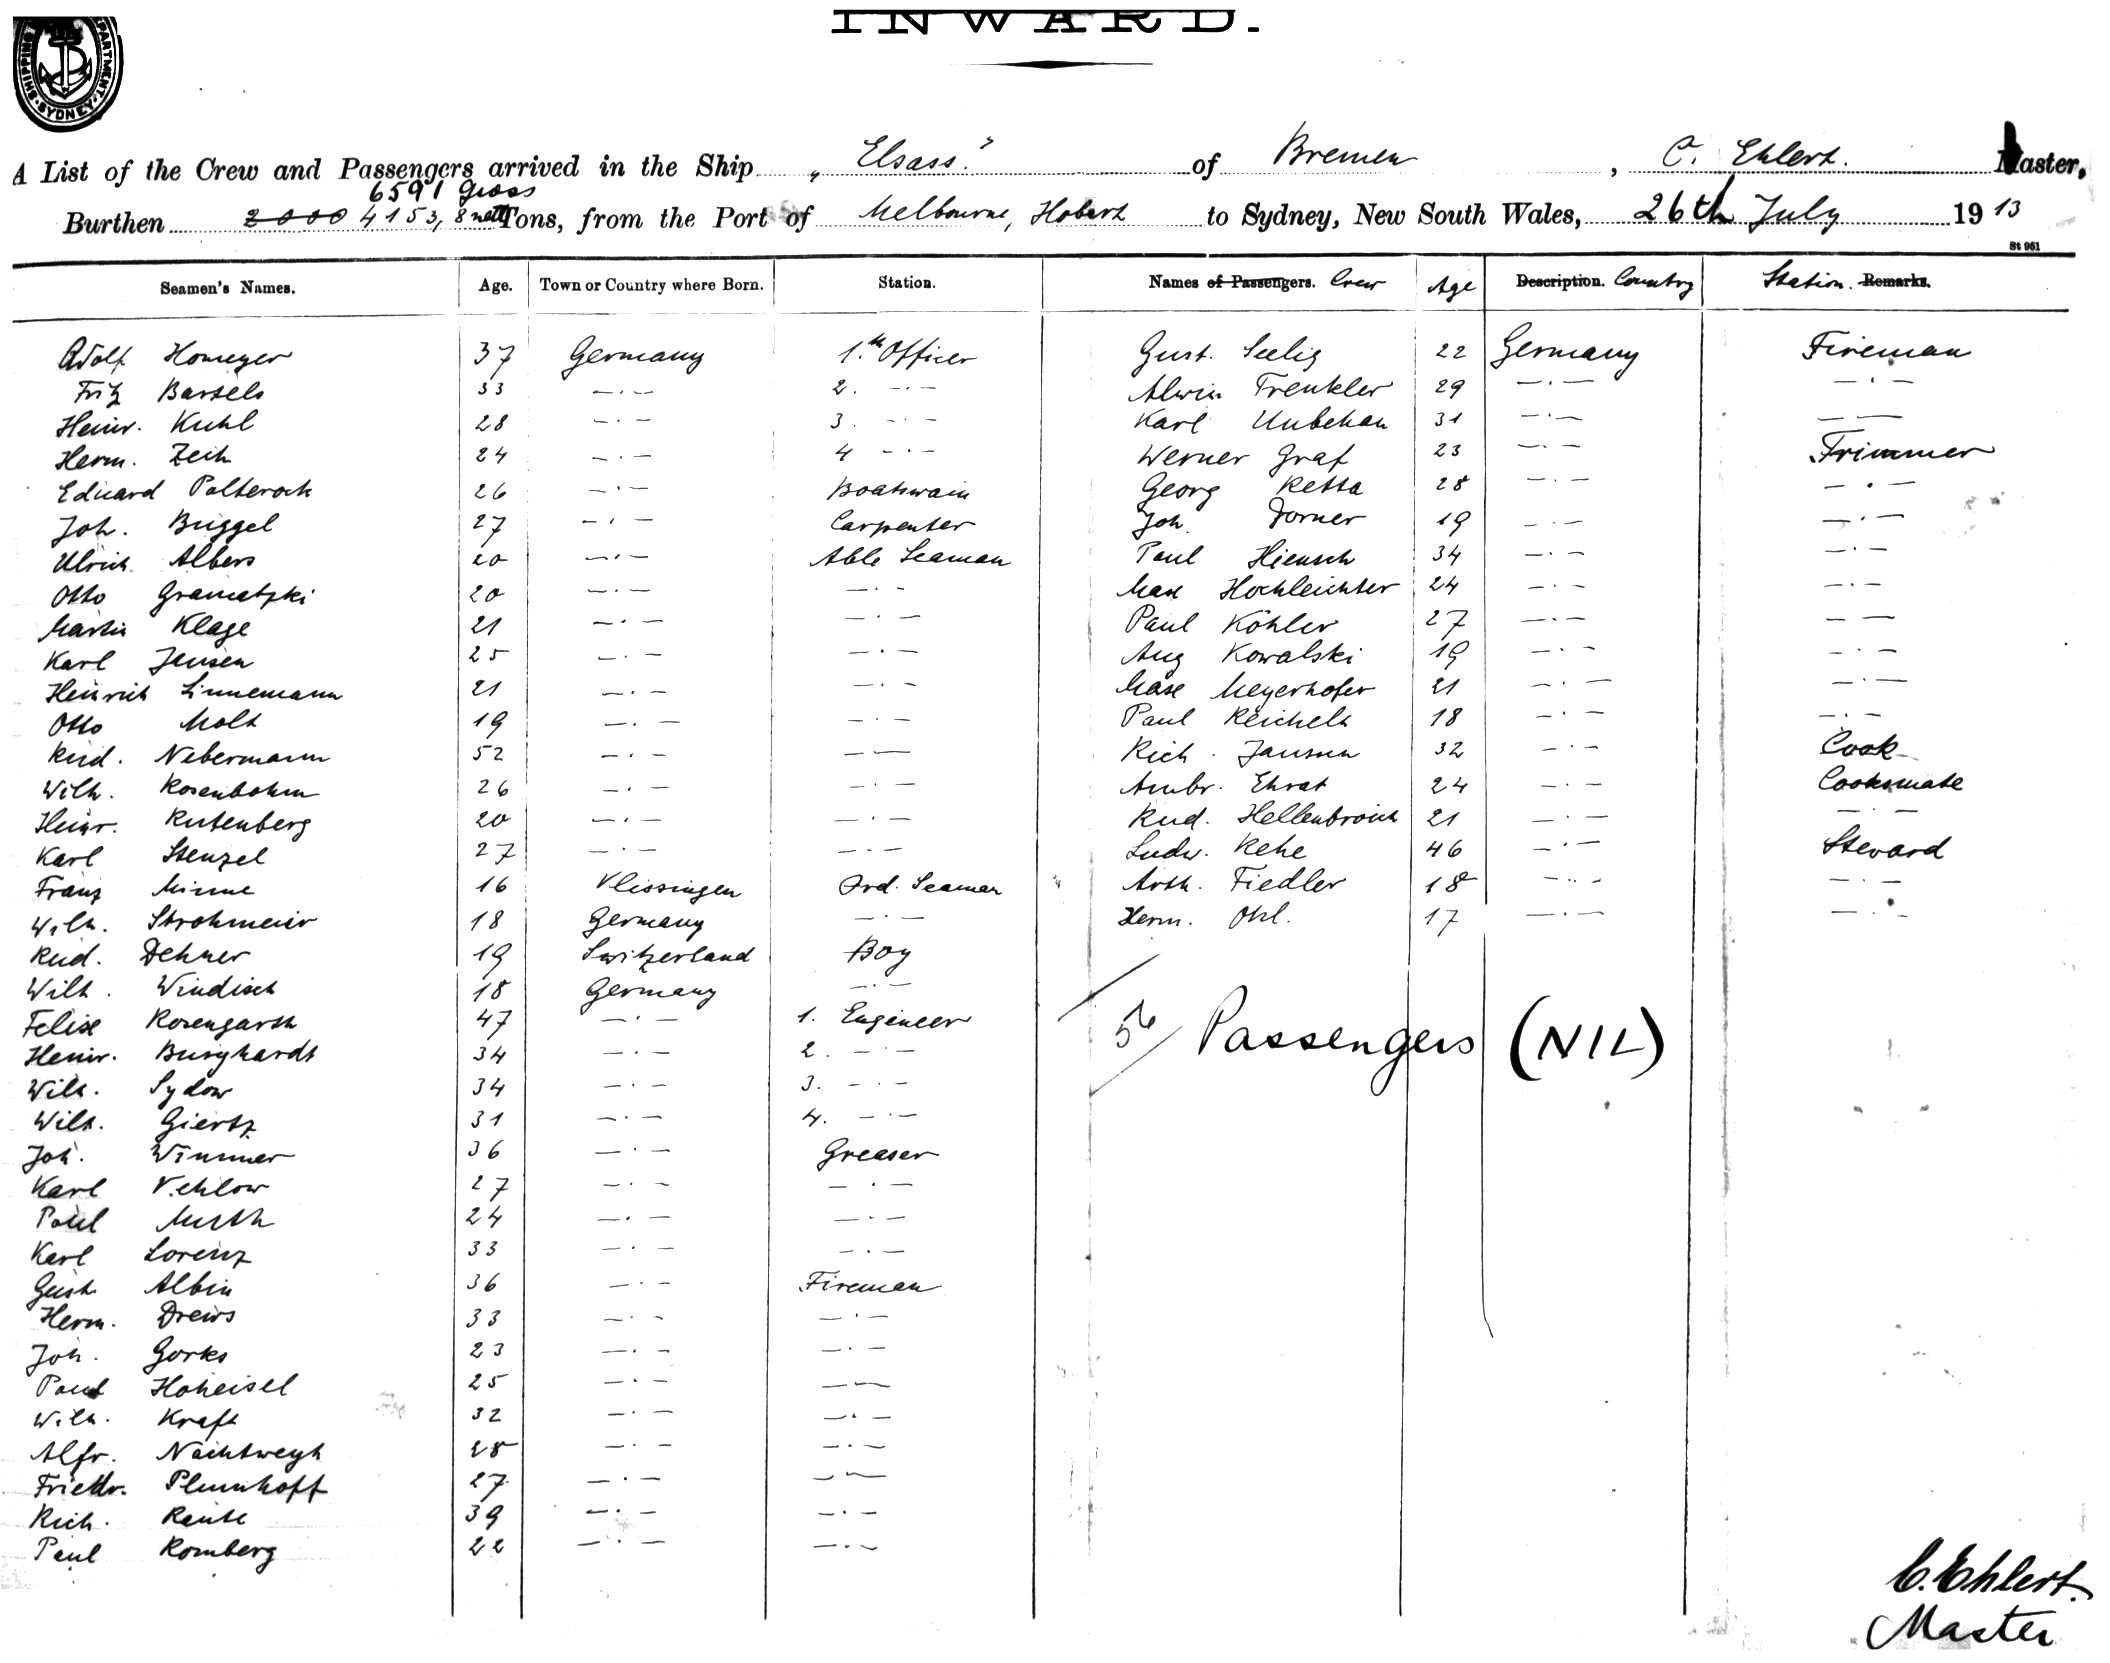 INWARD.
SHIPPING DEPARTMENT. SYDNEY
A List of the Crew and Passengers arrived in the Ship „Elsass" of Bremen, C. Ehlert. Master,
6591 gross
Burthen 2000 4153,8 nett Tons, from the Port of Melbourne, Hobart to Sydney, New South Wales, 26th July 1913
St 951
Seamen's Names. Age. Town or Country where Born. Station. Names of Passengers. Crew Age Description. Country Station. Remarks.
Adolf Homeyer 37 Germany 1.te Officer Gust. Seelig 22 Germany Fireman
Fritz Bartels 33 —·— 2. —·— Alwin Trenkler 29 —·— —·—
Heinr. Kuhl 28 —·— 3. —·— Karl Unbehau 31 —·— ——
Herm. Zeih 24 —·— 4 —·— Werner Graf 23 —·— Trimmer
Eduard Polterock 26 —·— Boatswain Georg Retta 28 —·— —·—
Joh. Buggel 27 —·— Carpenter Joh. Dorner 19 —·— —·—
Ulrich Albers 20 —·— Able Seaman Paul Hiensch 34 —·— —·—
Otto Gramatzki 20 —·— —·— Max Hochleichter 24 —·— —·—
Martin Klage 21 —·— —·— Paul Köhler 27 —·— ——
Karl Jensen 25 —·— —·— Aug Kowalski 19 —·— —·—
Heinrich Linnemann 21 —·— —·— Max Meyerhofer 21 —·— —·—
Otto Molt 19 —·— —·— Paul Reichelt 18 —·— —·—
Rud. Nebermann 52 —·— —— Rich. Janssen 32 —·— Cook
Wilh. Rosenbohm 26 —·— —·— Ambr. Ehrat 24 —·— Cooksmate
Heinr. Rutenberg 20 —·— —·— Rud. Hellenbroich 21 —·— —·—
Karl Stenzel 27 —·— —·— Ludw. Rehe 46 —·— Steward
Franz Minne 16 Vlissingen Ord. Seaman Arth. Fiedler 18 —·— —·—
Wilh. Strohmeier 18 Germany —·— Herm. Ohl. 17 —·— —·—
Rud. Dehner 19 Switzerland Boy
Wilh. Windisch 18 Germany —·—
Felix Rosengarth 47 —·— 1. Engineer
56 Passengers (NIL)
Heinr. Burghardt 34 —·— 2. —·—
Wilh. Sydow 34 —·— 3. —·—
Wilh. Giertz 31 —·— 4. —·—
Joh. Wimmer 36 —·— Greaser
Karl Vehlow 27 —·— —·—
Paul Murth 24 —·— —·—
Karl Lorenz 33 —·— —·—
Gust. Albin 36 —·— Fireman
Herm. Drews 33 —·— —·—
Joh. Gorks 23 —·— —·—
Paul Hoheisel 25 —·— ——
Wilh. Kraft 32 —·— —·—
Alfr. Nachtweyh 28 —·— —·—
Friedr. Plumhoff 27 —·— ——
Rich. Raute 39 —·— —·—
Paul Romberg 22 —·— —·—
C. Ehlert.
Master